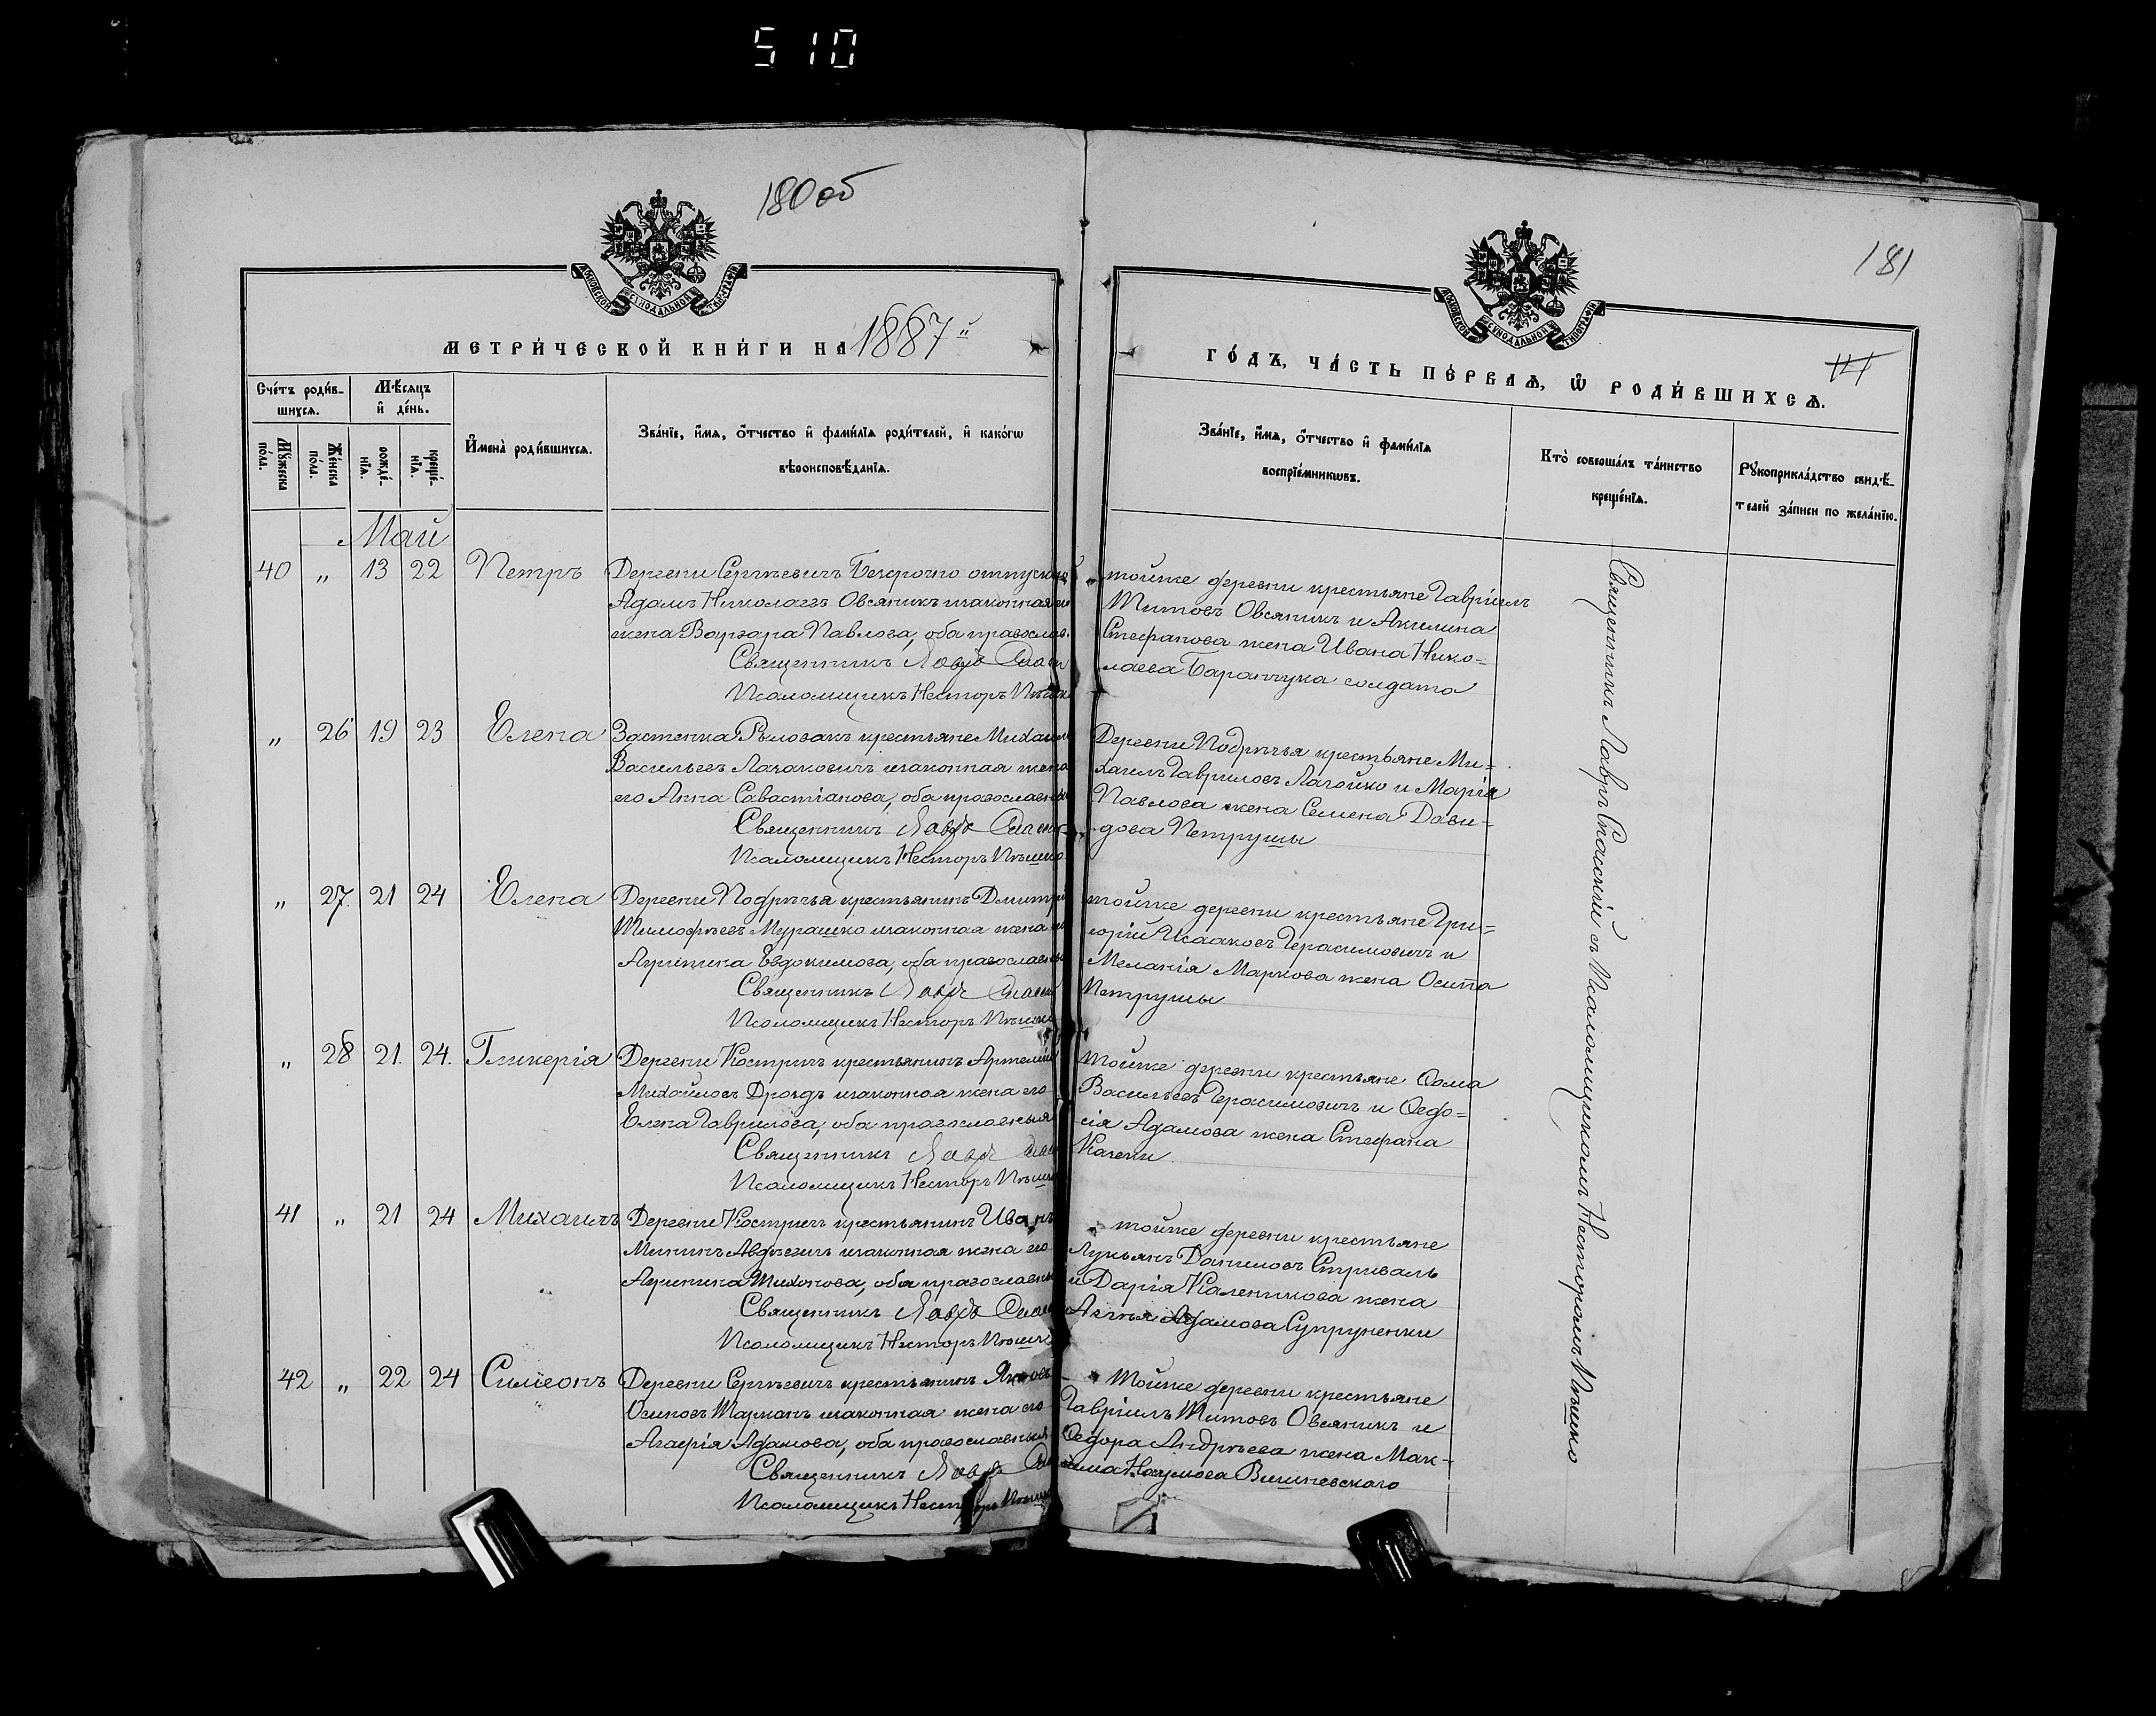 510
180 об
181
МОСКОВСКОЙ СѴНОДАЛЬНОЙ ТИПОГРАФІИ
МОСКОВСКОЙ СѴНОДАЛЬНОЙ ТИПОГРАФІИ
МЕТРИ́ЧЕСКОЙ КНИ́ГИ НА 1887й
ГО́ДЪ, ЧА́СТЬ ПЕ́РВАЯ, Ѡ РОДИ́ВШИХСЯ.
Сче́тъ роди́в-
шихся.
Мѣ́сяцъ
и де́нь.
Му́жеска
по́ла.
Же́нска
по́ла.
рожде́-
нія.
креще́-
нія.
Имена̀ роди́вшихся.
Зва́ніе, имя, отчество и фами́лія роди́телей, и како́гѡ
вѣроисповѣ́данія.
Зва́ніе, имя, отчество и фами́лія
воспріе́мникѡвъ.
Кто̀ соверша́лъ та́инство
креще́нія.
Рукоприкла́дство свидѣ́-
телей за́писи по жела́нію.
Май
40 " 13 22 Петръ Деревни Сергѣевичъ Безсрочно отпускной
Адамъ Николаевъ Овсяникъ и законная его
жена Варвара Павлова, оба православ.
Священникъ Лавръ Спасскій
Псаломщикъ Несторъ Пѣшко
тойже деревни крестьяне Гавріилъ
Титовъ Овсяникъ и Акилина
Стефанова жена Ивана Нико=
лаева Баранчука солдата
" 26 19 23 Елена Застенка Рыловакъ крестьяне Михаилъ
Васильевъ Лагаковичъ и законная жена
его Анна Савастіанова, оба православны
Священникъ Лавръ Спасскій
Псаломщикъ Несторъ Пѣшко
Деревни Подрѣчья крестьяне Ми=
хаилъ Гавриловъ Лагойко и Марія
Павлова жена Семена Дави=
дова Петруши
" 27. 21 24 Елена Деревни Подрѣчья крестьянинъ Димитрій
Тимофѣевъ Мурашко и законная жена его
Агрипина Евдокимова, оба православны
Священникъ Лавръ Спасскій
Псаломщикъ Несторъ Пѣшко
тойже деревни крестьяне Гри=
горій Исааковъ Герасимовичъ и
Меланія Маркова жена Осипа
Петруши
" 28 21. 24. Гликерія Деревни Костричъ крестьянинъ Артемій
Михайловъ Дроздъ и законная жена его
Елена Гаврилова, оба православныя
Священникъ Лавръ Спасскій
Псаломщикъ Несторъ Пѣшко
Тойже деревни крестьяне Ѳома
Васильевъ Герасимовичъ и Ѳедо=
сія Адамова жена Стефана
41 " 21 24 Михаилъ Деревни Костричъ крестьянинъ Иванъ
Мининъ Авдѣевичъ и законная жена его
Агрипина Тихонова, оба православны
Священникъ Лавръ Спасскій
Псаломщикъ Несторъ Пѣшко
тойже деревни крестьяне
Лукьянъ Даниловъ Стриваль
и Дарія Каленикова жена
Адамова Супруненки
42 " 22 24 Симеонъ Деревни Сергѣевичъ крестьянинъ Яковъ
Осиповъ Тарканъ и законная жена его
Агафія Адамова, оба православныя
Священникъ Лавръ Спасскій
Псаломщикъ Несторъ Пѣшко
Тойже деревни крестьяне
Гавріилъ Титовъ Овсяникъ и
Ѳедора Андрѣева жена Мак-
сима Наумова Вишневскаго
Священникъ Лавръ Спасскій съ Псаломщикомъ Несторомъ Пѣшко